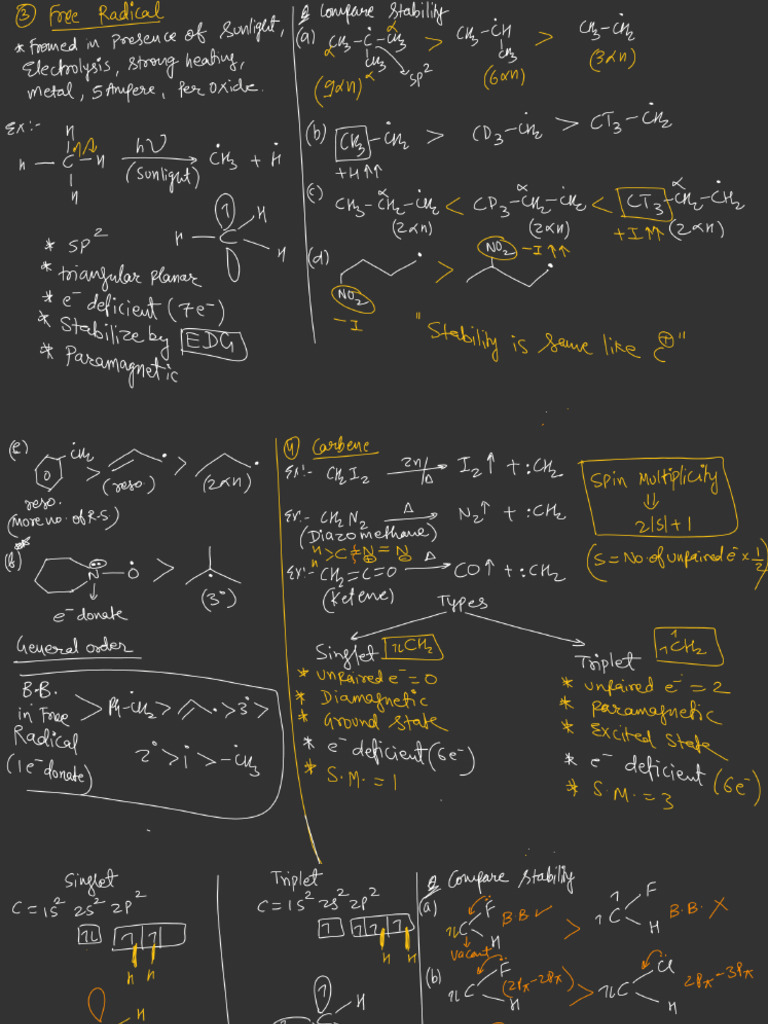 ③ Free Radical
* Formed in presence of Sunlight,
Electrolysis, strong heating,
metal, 5Ampere, Peroxide.
Ex:-
H
H — C — H
H
hν
(Sunlight)
ĊH3 + Ḣ
1 H
H — C H
* SP²
* triangular planar
* e⁻ deficient (7e⁻)
* Stabilize by EDG
* Paramagnetic
Q Compare Stability
(a) CH3-Ċ-CH3 > CH3-ĊH > CH3-ĊH2
CH3 CH3
α α α SP²
(9αH) (6αH) (3αH)
(b) CH3-ĊH2 > CD3-ĊH2 > CT3-ĊH2
+H↑↑
(c) CH3-CH2-ĊH2 < CD3-CH2-ĊH2 < CT3-CH2-ĊH2
α α α
(2αH) (2αH) +I↑↑ (2αH)
(d) NO2 > NO2 -I↑↑
-I
"Stability is same like C⊕"
(e) ĊH2 > > 
reso. (reso.) (2αH)
(more no. of R.S.)
(f) N — Ȯ >
e⁻ donate (3°)
General order
B.B. in Free Radical (1e⁻ donate) > Ph-ĊH2 > > 3° >
2° > 1° > -ĊH3
④ Carbene
Ex:- CH2I2 Zn/Δ I2↑ + :CH2
Ex:- CH2N2 Δ N2↑ + :CH2
(Diazomethane)
H
H >C=N=N
Ex:- CH2=C=O Δ CO↑ + :CH2
(Ketene)
Spin Multiplicity
⇓
2|S|+1
(S = No. of unpaired e⁻ × 1/2)
Types
Singlet 1⇂CH2
* unpaired e⁻ = 0
* Diamagnetic
* Ground State
* e⁻ deficient (6e⁻)
* S.M. = 1
Triplet 1 1CH2
* unpaired e⁻ = 2
* paramagnetic
* Excited State
* e⁻ deficient (6e⁻)
* S.M. = 3
Singlet
C = 1S² 2S² 2P²
1⇂ 1 1
H H
H
Triplet
C = 1S² 2S² 2P²
1 1 1 1
H H
1 H
C
Q Compare Stability
(a) 1⇂C F H B.B.✓ > 1 1C F H B.B. ✗
vacant
(b) 1⇂C F H (2Pπ-2Pπ) > 1⇂C Cl H 2Pπ-3Pπ